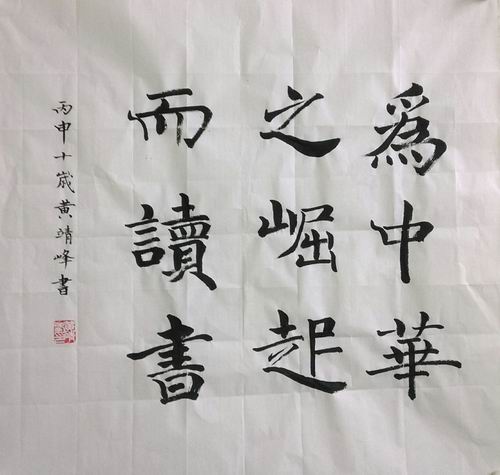 為中華
之崛起
而讀書
丙申十歲黃靖峰書